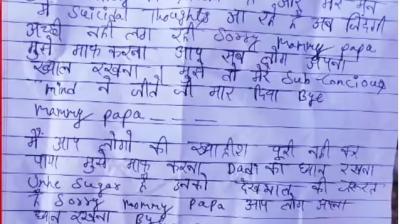 और मेरे मन
में suicidal thoughts आ रहे हैं अब जिंदगी
अच्छी नहीं लग रही Sorry mommy papa
मुझे माफ करना आप सब लोग अपना
ख्याल रखना । मुझे तो मेरे Sub-concious
mind ने जीते जी मार दिया Bye
mammy papa - - - -
मैं आप लोगो की ख्वाहीश पूरी नही कर
पापा मुझे माफ करना Dadi का ध्यान रखना
Unhe Sugar है उनको देखभाल की जरूरत
है Sorry mommy papa आप लोग अपना
ध्यान रखना Bye